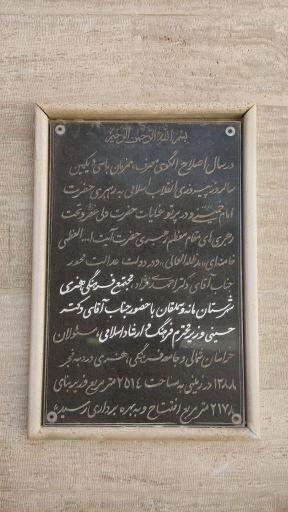 بسم الله الرحمن الرحیم
در سال اصلاح الگوی مصرف، همزمان با سی و یکمین
سالروز پیروزی انقلاب اسلامی به رهبری حضرت
امام خمینی و در پرتو عنایات حضرت ولی عصر و تحت
رهبری های مقام معظم رهبری حضرت آیت ا... العظمی
خامنه ای «مدظله العالی» در دولت عدالت محور
جناب آقای دکتر احمدی نژاد، مجتمع فرهنگی هنری
شهرستان مانه و سملقان با حضور جناب آقای دکتر
حسینی وزیر محترم فرهنگ و ارشاد اسلامی، مسئولان
خراسان شمالی و جامعه فرهنگی، هنری در دهه فجر
۱۳۸۸ در زمینی به مساحت ۲۵۱۴ متر مربع و زیر بنای
۲۱۷۸ متر مربع افتتاح و به بهره برداری رسید